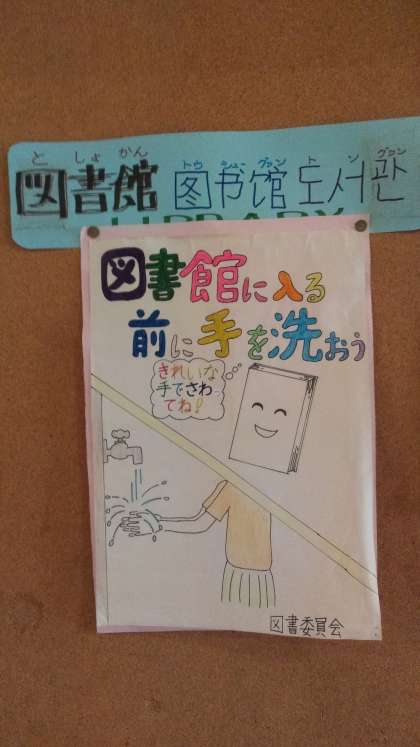 と しょ かん トゥ シュー グァン ト ソ グァン
図書館 图书馆 도서관
LIBRARY
図書館に入る
前に手を洗おう
きれいな
手でさわ
てね!
図書委員会